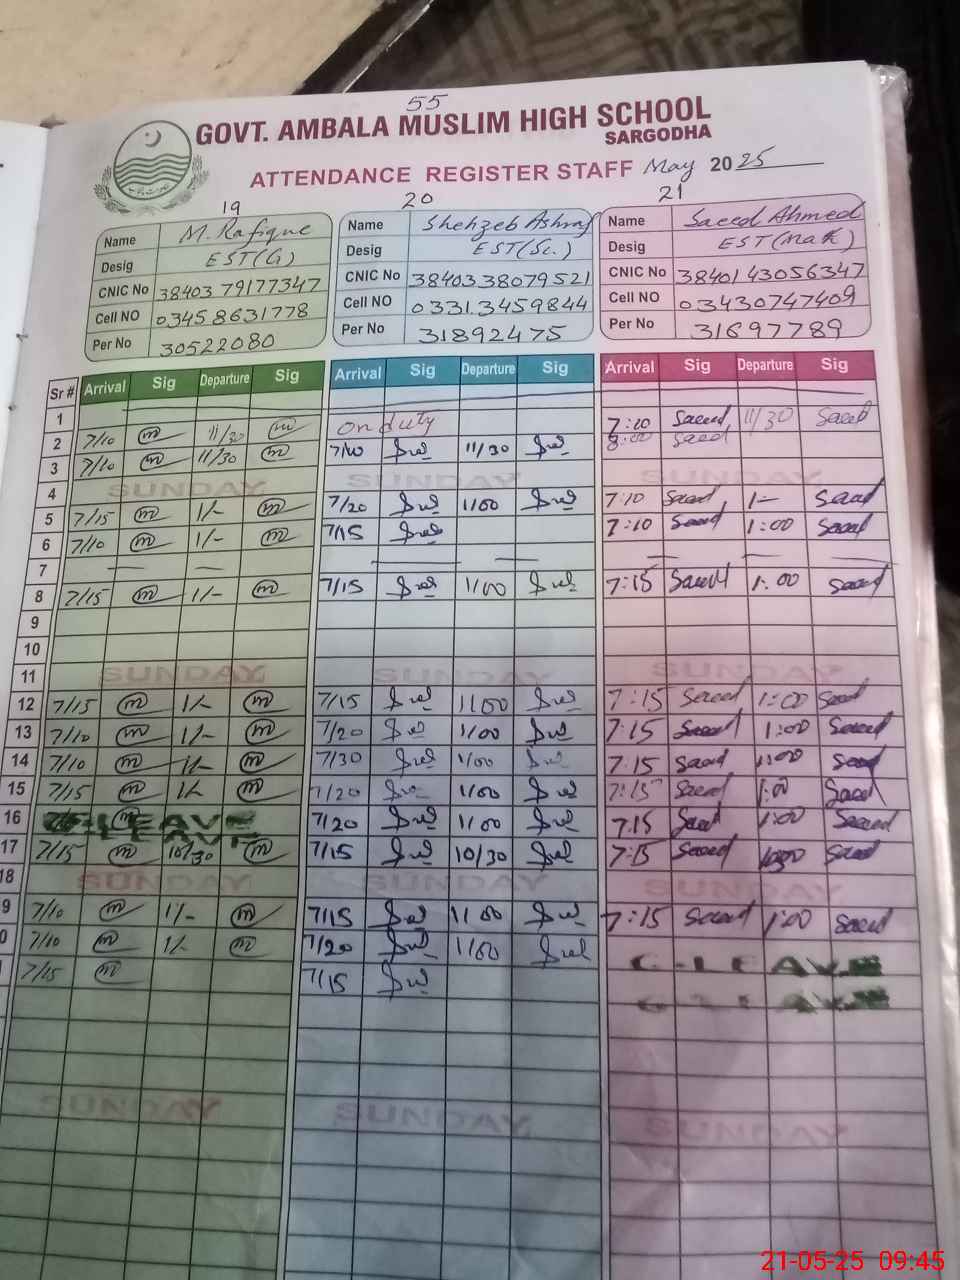 55
GOVT. AMBALA MUSLIM HIGH SCHOOL
SARGODHA
ATTENDANCE REGISTER STAFF May 2025
19 20 21
Name M. Rafique Name Shehzeb Ashraf Name Saeed Ahmed
Desig EST(G) Desig EST(Sc.) Desig EST(Math)
CNIC No 38403 79177347 CNIC No 3840338079521 CNIC No 3840143056347
Cell NO 03458631778 Cell NO 03313459844 Cell NO 03430747409
Per No 30522080 Per No 31892475 Per No 31697789
Sr # Arrival Sig Departure Sig Arrival Sig Departure Sig Arrival Sig Departure Sig
1
2 7/10 m 11/30 m on duty 7:10 Saeed 11/30 Saeed
8:00 Saeed
3 7/10 m 11/30 m 7/10 11/30
4 SUNDAY SUNDAY SUNDAY
5 7/15 m 1/- m 7/20 1/00 7:10 Saeed 1- Saeed
6 7/10 m 1/- m 7/15 7:10 Saeed 1:00 Saeed
7 — — — — — — —
8 7/15 m 1/- m 7/15 1/00 7:15 Saeed 1:00 Saeed
9
10
11 SUNDAY SUNDAY SUNDAY
12 7/15 m 1/- m 7/15 1/00 7:15 Saeed 1:00 Saeed
13 7/10 m 1/- m 7/20 1/00 7:15 Saeed 1:00 Saeed
14 7/10 m 1/- m 7/30 1/00 7:15 Saeed 1:00 Saeed
15 7/15 m 1/- m 7/20 1/00 7:15 Saeed 1:00 Saeed
16 C-LEAVE 7/20 1/00 7:15 Saeed 1:00 Saeed
17 7/15 m 10/30 m 7/15 10/30 7:15 Saeed Saeed
18 SUNDAY SUNDAY SUNDAY
9 7/10 m 1/- m 7/15 1/00 7:15 Saeed 1:00 Saeed
0 7/10 m 1/- m 7/20 1/00 C-LEAVE
7/15 m 7/15 C-LEAVE
SUNDAY SUNDAY SUNDAY
21-05-25 09:45